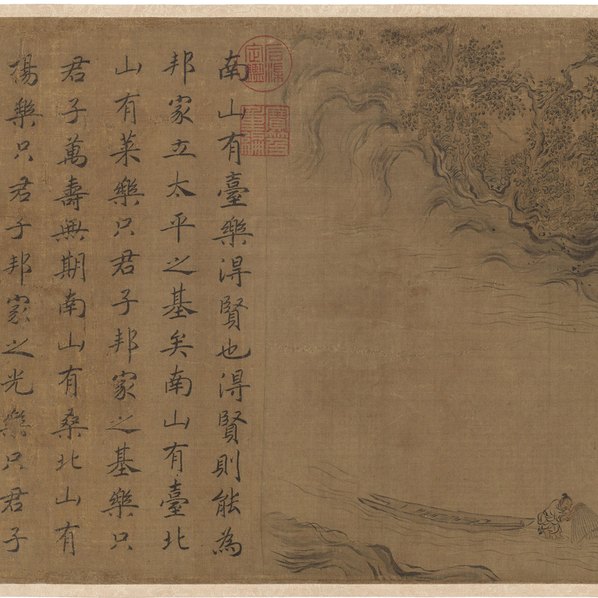 南山有臺樂得賢也得賢則能為
邦家立太平之基矣南山有臺北
山有萊樂只君子邦家之基樂只
君子萬壽無期南山有桑北山有
楊樂只君子邦家之光樂只君子